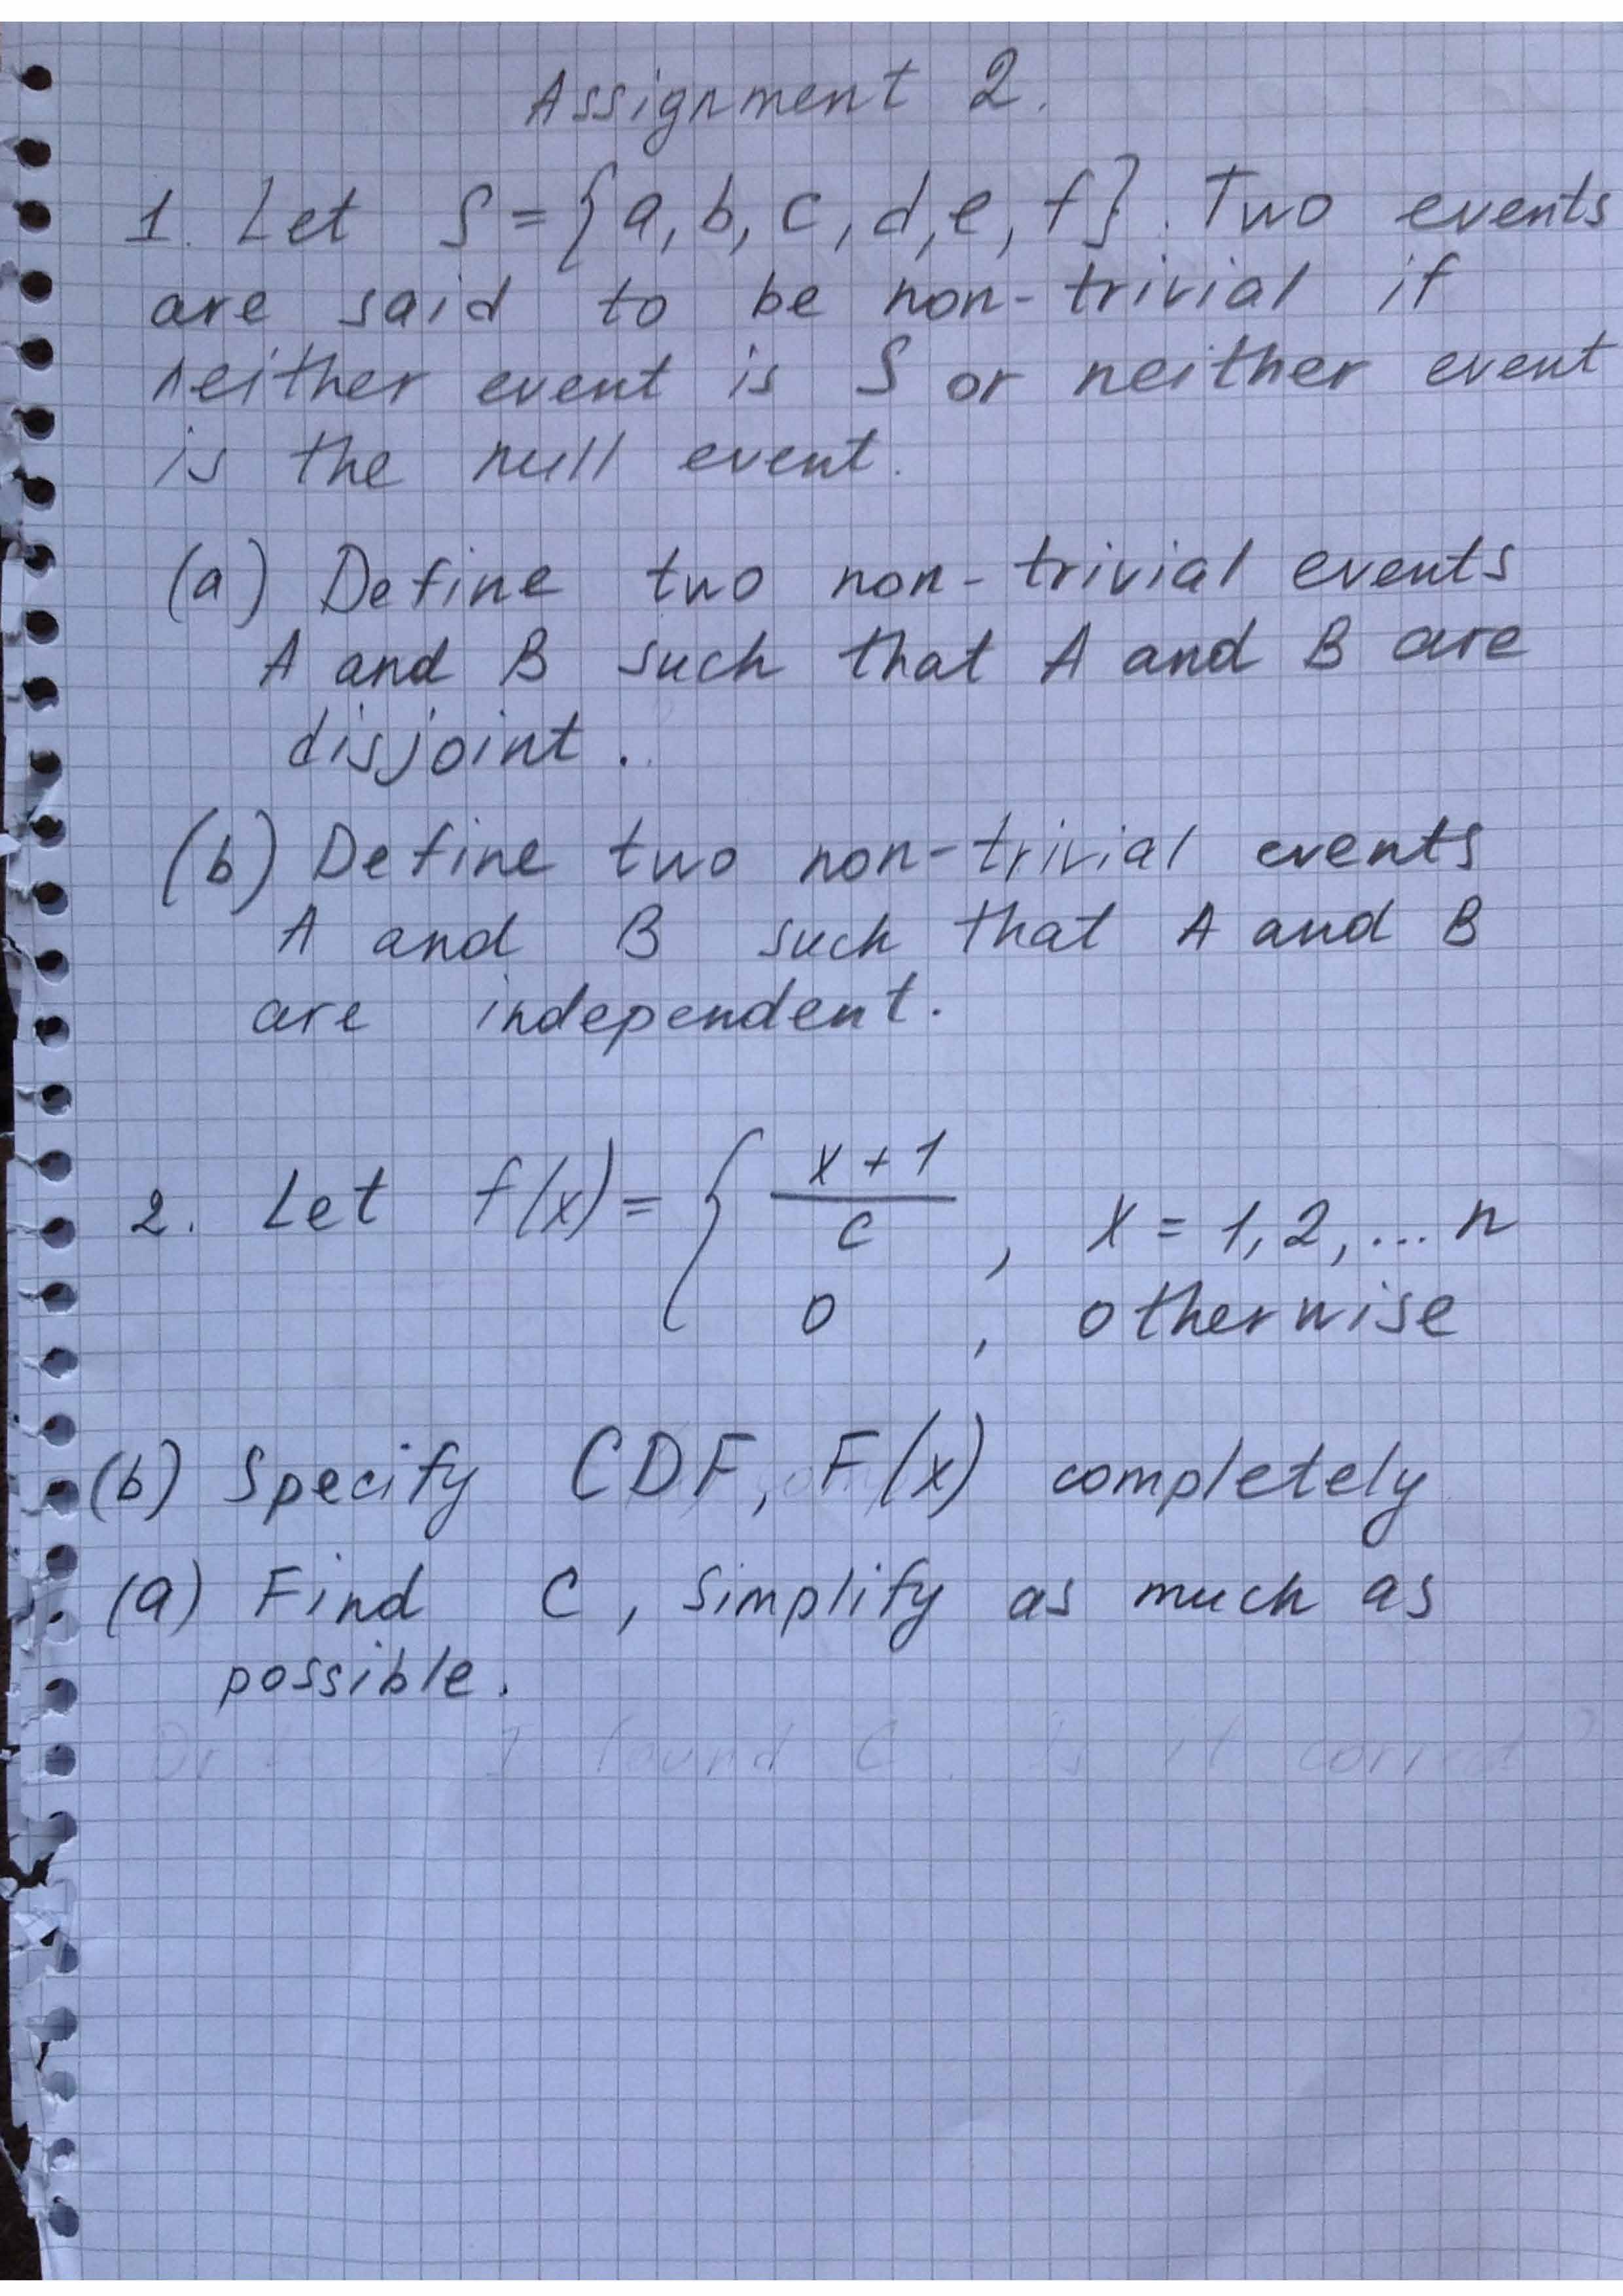 Assignment 2.
1. Let S = {a, b, c, d, e, f}. Two events
are said to be non-trivial if
neither event is S or neither event
is the null event.
(a) Define two non-trivial events
A and B such that A and B are
disjoint.
(b) Define two non-trivial events
A and B such that A and B
are independent.
2. Let f(x) = { x + 1 / c , x = 1, 2, ... n
0 , otherwise
(b) Specify CDF, F(x) completely
(a) Find C, simplify as much as
possible.
I found C. Is it correct?